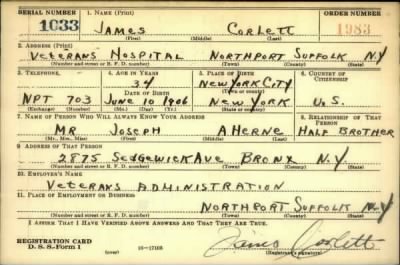 SERIAL NUMBER 1. NAME (Print) ORDER NUMBER
1033 JAMES CORLETT 1983
(First) (Middle) (Last)
2. ADDRESS (Print)
VETERANS HOSPITAL NORTHPORT SUFFOLK N.Y
(Number and street or R. F. D. number) (Town) (County) (State)
3. TELEPHONE 4. AGE IN YEARS 5. PLACE OF BIRTH 6. COUNTRY OF CITIZENSHIP
34 NEW YORK CITY
DATE OF BIRTH (Town or county)
NPT 703 JUNE 10 1906 NEW YORK U.S.
(Exchange) (Number) (Mo.) (Day) (Yr.) (State or country)
7. NAME OF PERSON WHO WILL ALWAYS KNOW YOUR ADDRESS 8. RELATIONSHIP OF THAT PERSON
MR JOSEPH AHERNE HALF BROTHER
(Mr., Mrs., Miss) (First) (Middle) (Last)
9. ADDRESS OF THAT PERSON
2875 SEDGEWICK AVE BRONX N.Y
(Number and street or R. F. D. number) (Town) (County) (State)
10. EMPLOYER'S NAME
VETERANS ADMINISTRATION
11. PLACE OF EMPLOYMENT OR BUSINESS
NORTHPORT SUFFOLK N.Y
(Number and street or R. F. D. number) (Town) (County) (State)
I AFFIRM THAT I HAVE VERIFIED ABOVE ANSWERS AND THAT THEY ARE TRUE.
REGISTRATION CARD
D. S. S. Form 1 (over) 16—17105 James Corlett
(Registrant's signature)